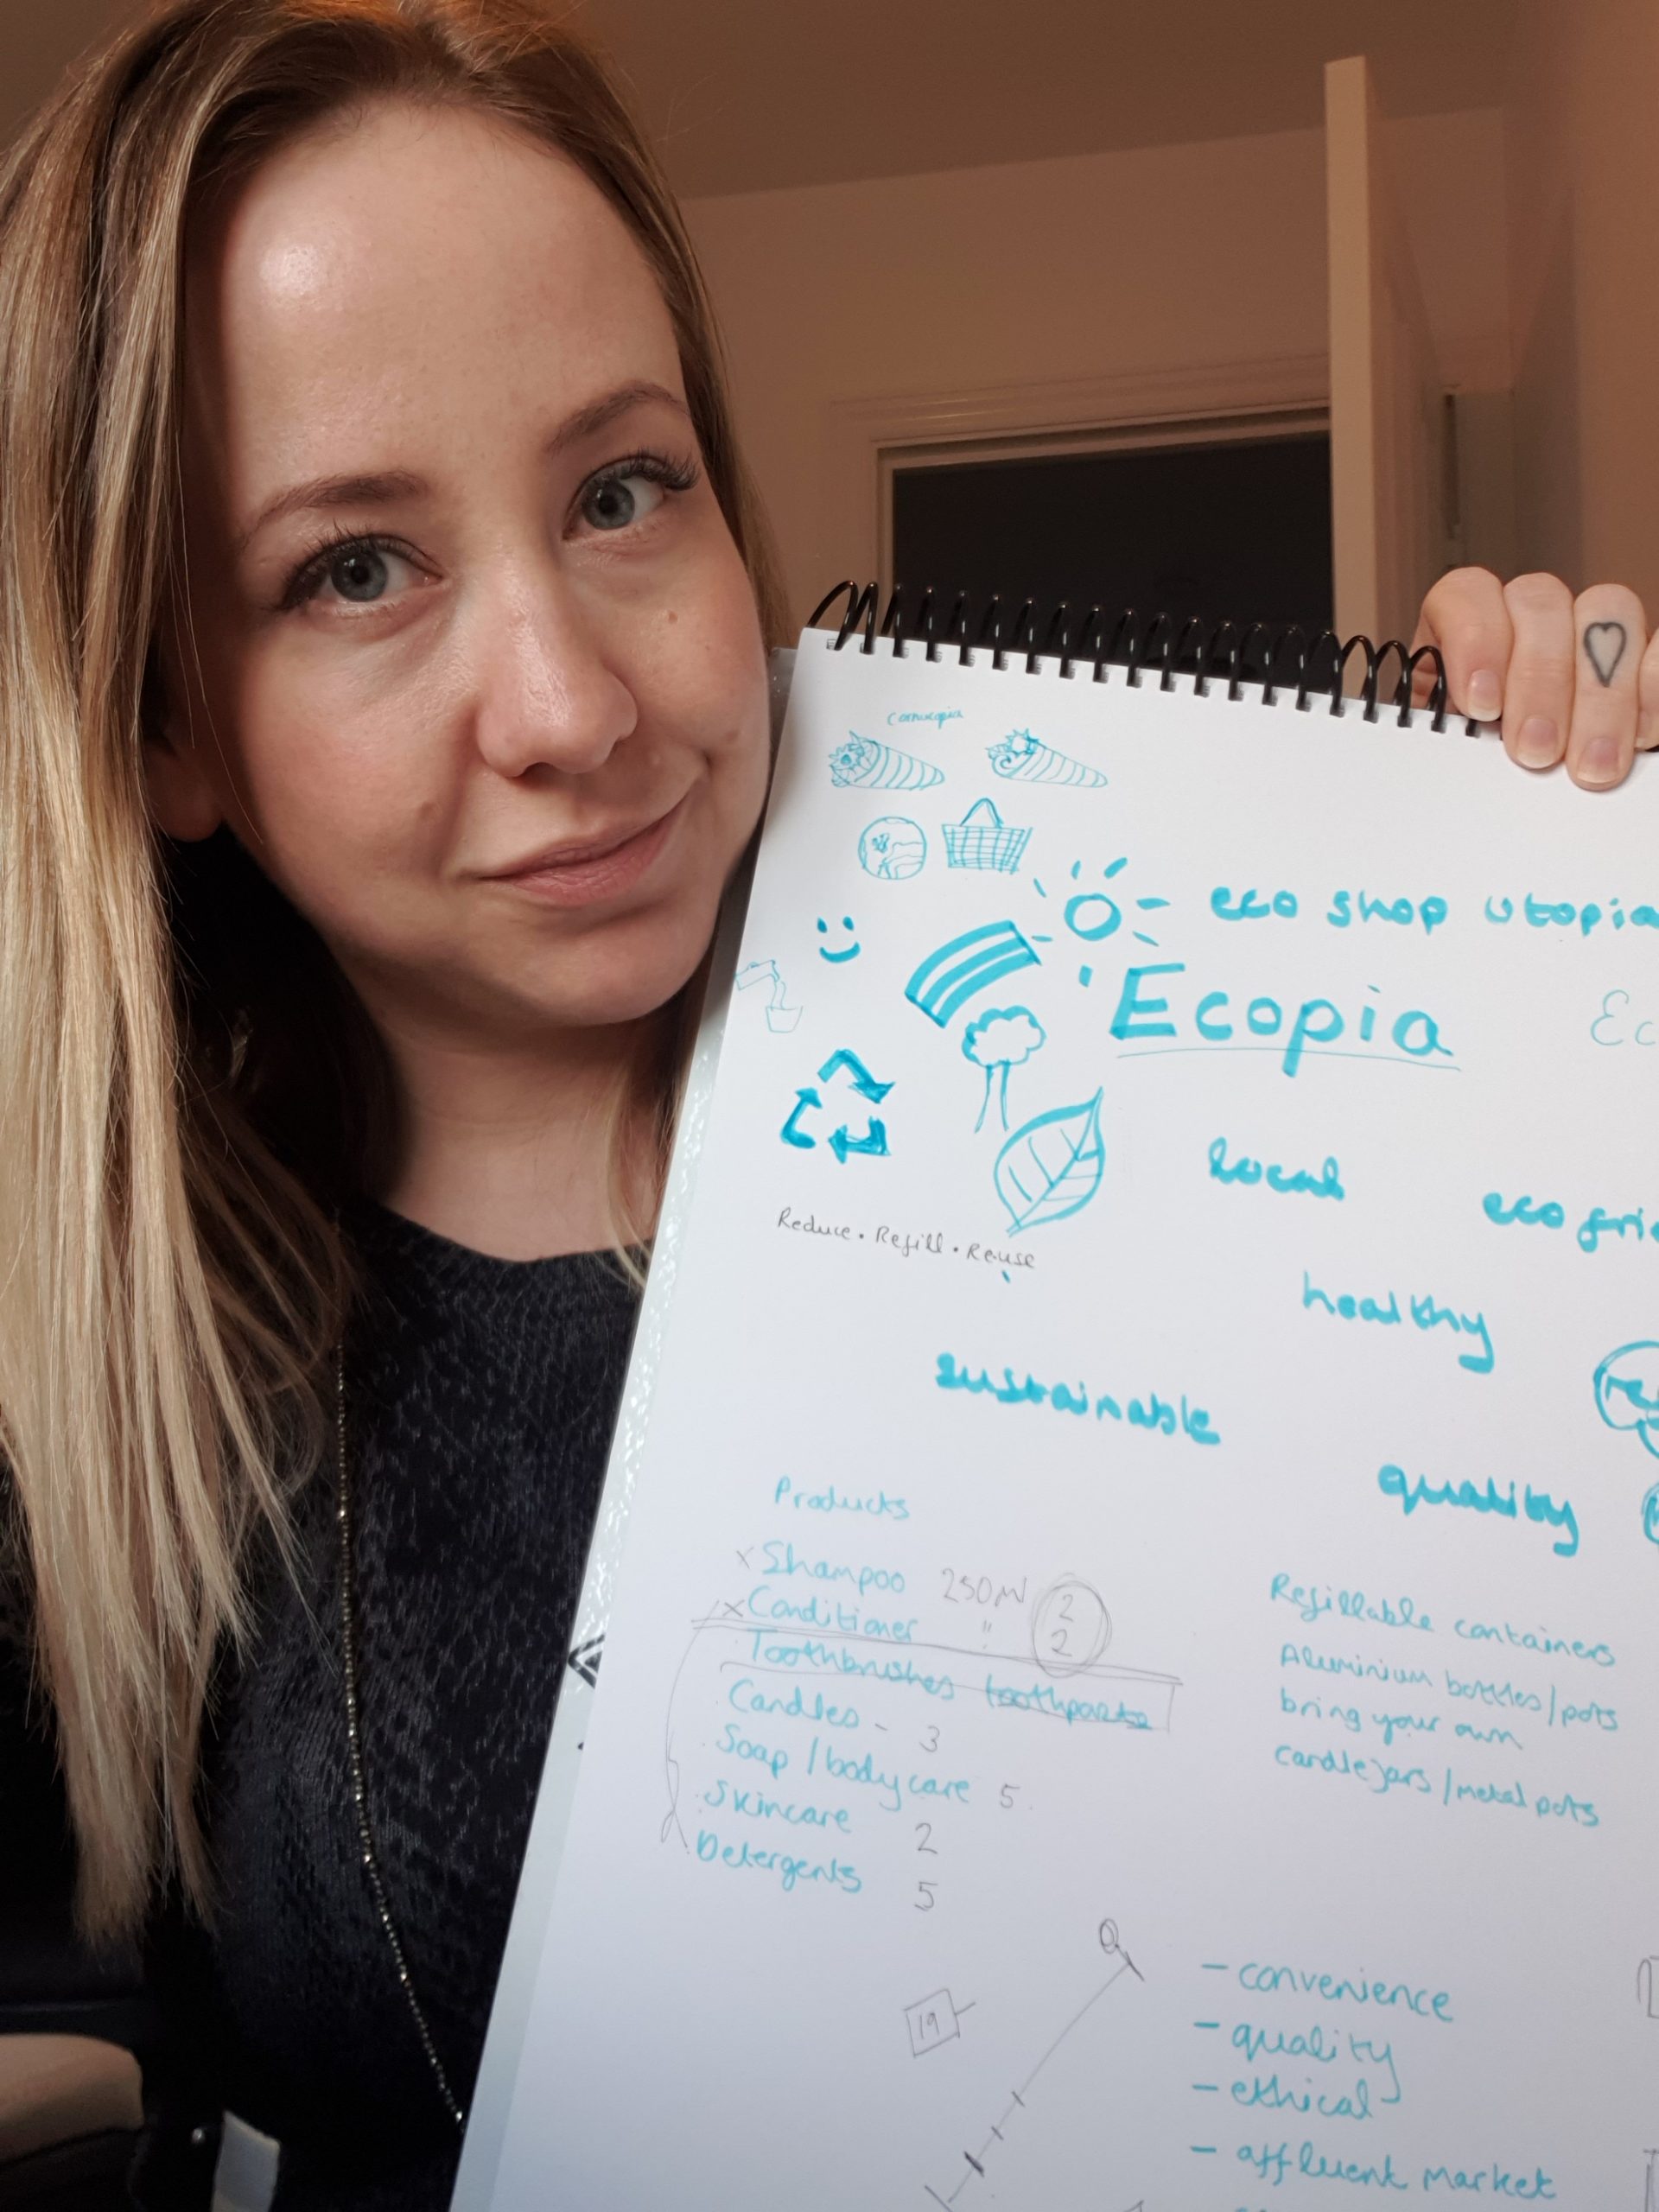 cornucopia
eco shop utopia
'Ecopia
Ec
local
eco frie
Reduce. Refill. Reuse
healthy
sustainable
quality
Products
x Shampoo 250ml 2
x Conditioner " 2
Toothbrushes toothpaste
Candles - 3
Soap / bodycare 5.
Skincare 2
Detergents 5
Refillable containers
Aluminium bottles/pots
bring your own
candle jars / metal pots
19
- convenience
- quality
- ethical
- affluent market